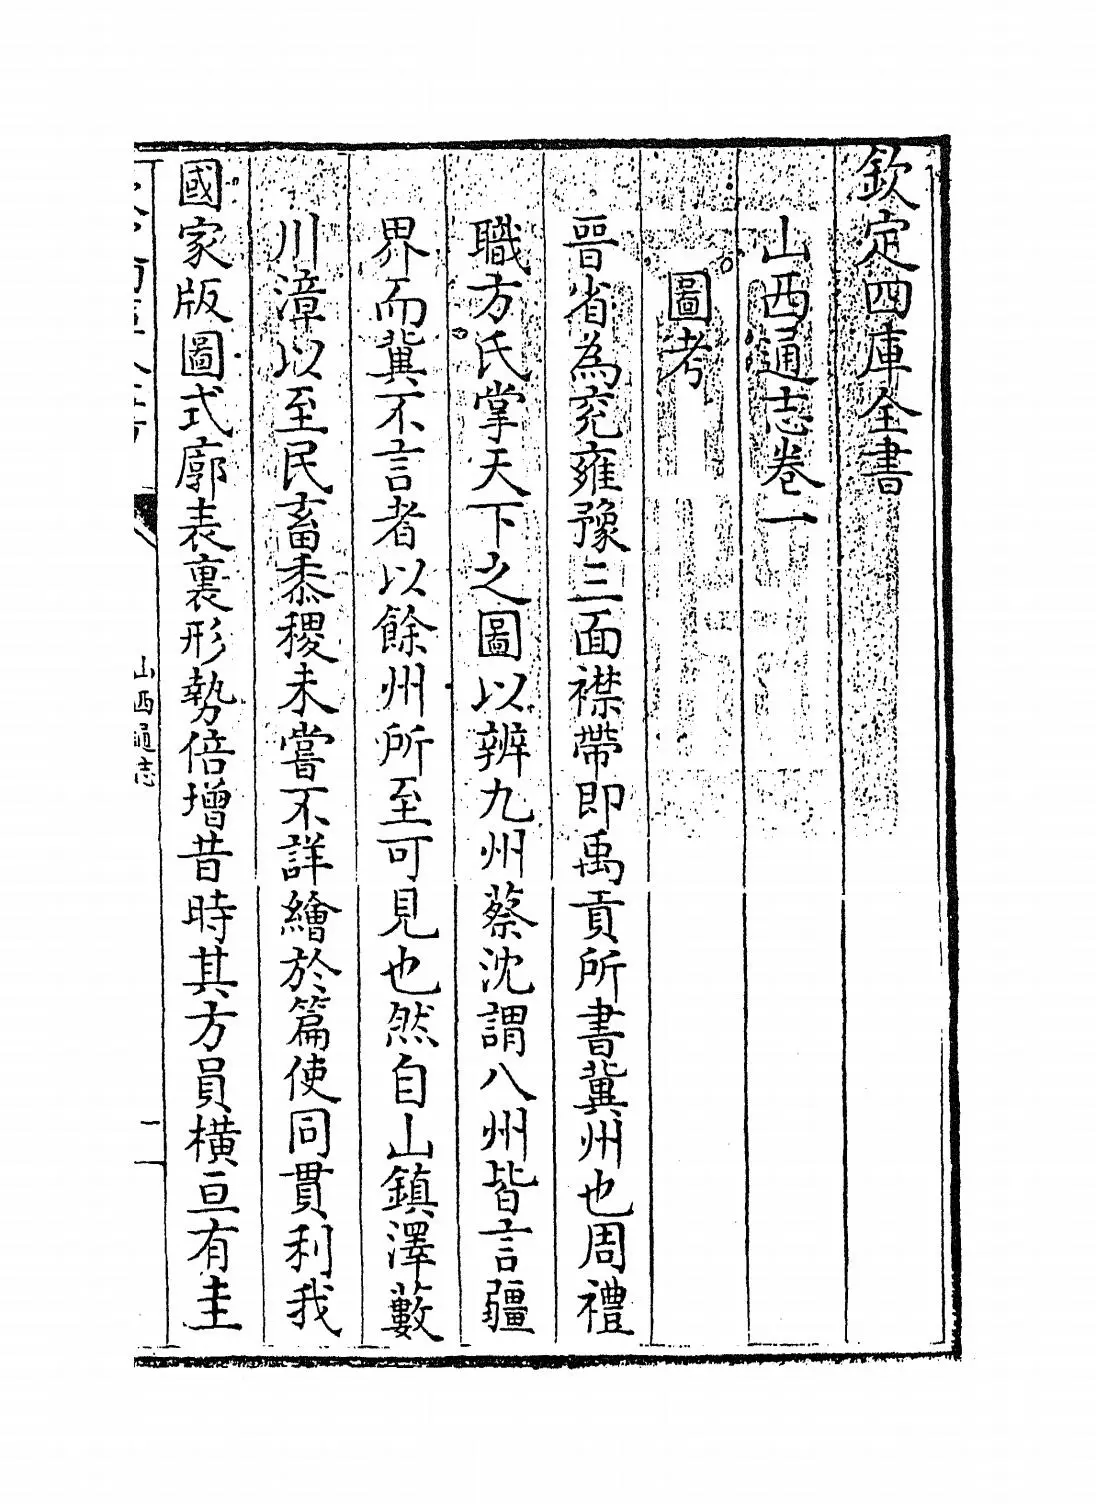 欽定四庫全書
山西通志卷一
圖考
晉省為兖雍豫三面襟帶即禹貢所書冀州也周禮
職方氏掌天下之圖以辨九州蔡沈謂八州皆言疆
界而冀不言者以餘州所至可見也然自山鎮澤藪
川漳以至民畜黍稷未嘗不詳繪於篇使同貫利我
國家版圖式廓表裏形勢倍增昔時其方員橫亘有圭
山西通志
一